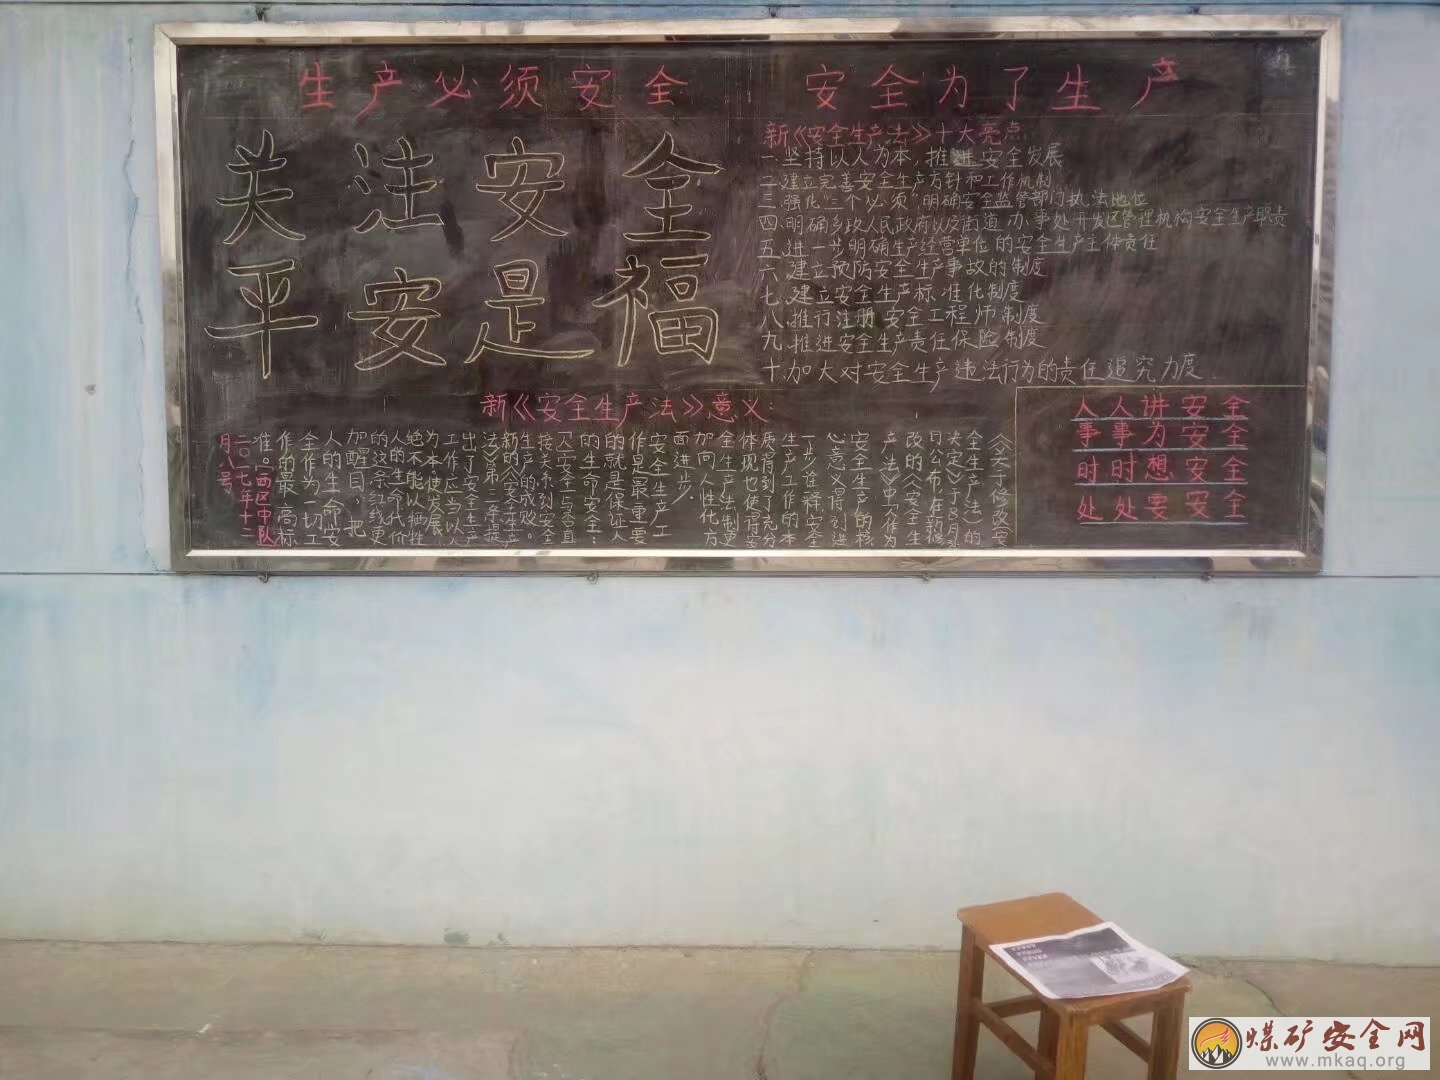 生产必须安全 安全为了生产
关注安全
平安是福
新《安全生产法》十大亮点
一.坚持以人为本,推进安全发展
二.建立完善安全生产方针和工作机制
三.强化"三个必须"明确安全监管部门执法地位
四.明确乡政人民政府以及街道办事处开发区管理机构安全生产职责
五.进一步明确生产经营单位的安全生产主体责任
六.建立预防安全生产事故的制度
七.建立安全生产标准化制度
八.推行注册安全工程师制度
九.推进安全生产责任保险制度
十.加大对安全生产违法行为的责任追究力度.
新《安全生产法》意义:
《关于修改安
全生产法》的
决定》于8月
日公布在新修
改的《安全生
产法》中人作为
安全生产的核
心意义得到进
一步诠释安全
生产工作的本
质得到了充分
体现也使得
全生产法制更
加向人性化方
面进步.
安全生产工
作是最重要
的就是保证人
的生命安全:
安全与否直
接关系到安全
生产的成败。
新的《安全生产
法》第三条提
出了安全生产
工作应当以人
为本使发展
绝不能以牺牲
人的生命代价
的这条红线更
加醒目,把
人的生命安
全作为一切工
作的最高标
准。西区中队
二〇一七年十二
月八号
人人讲安全
事事为安全
时时想安全
处处要安全
煤矿安全网
www.mkaq.org